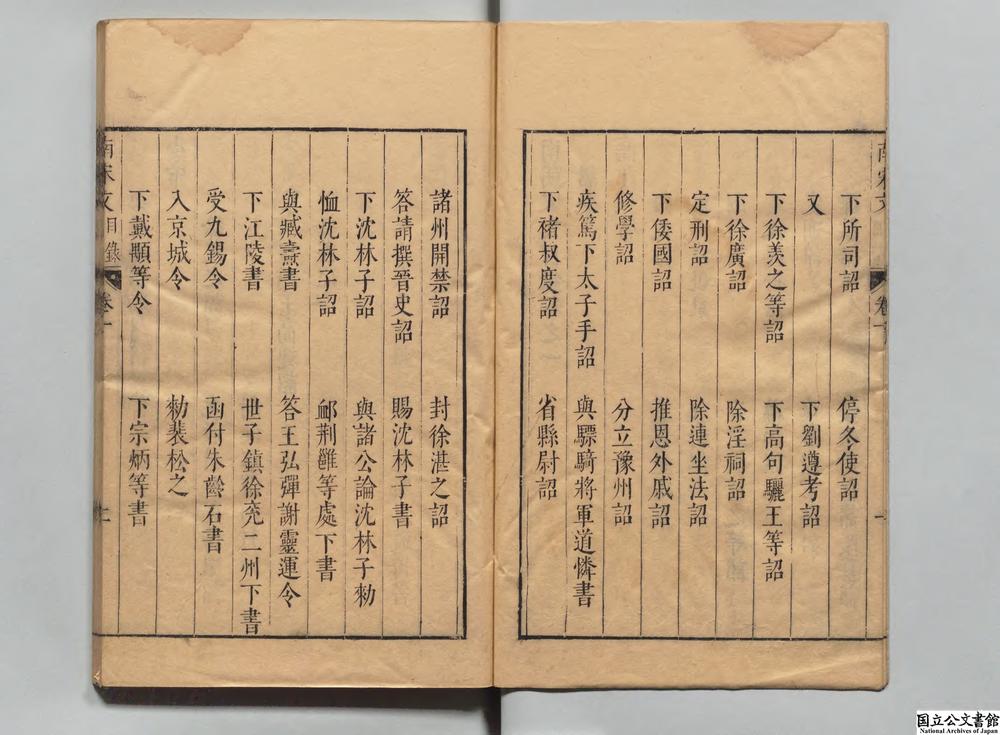 南宋文
卷一
下所司詔 停冬使詔
又 下劉遵考詔
下徐羨之等詔 下高句驪王等詔
下徐廣詔 除淫祠詔
定刑詔 除連坐法詔
下倭國詔 推恩外戚詔
修學詔 分立豫州詔
疾篤下太子手詔 與驃騎將軍道憐書
下褚叔度詔 省縣尉詔
諸州開禁詔 封徐湛之詔
答請撰晉史詔 賜沈林子書
下沈林子詔 與諸公論沈林子勑
恤沈林子詔 䘏荆雝等處下書
與臧燾書 答王弘彈謝靈運令
下江陵書 世子鎮徐兖二州下書
受九錫令 函付朱齡石書
入京城令 勑裴松之
下戴顒等令 下宗炳等書
南宋文目錄
卷一
国立公文書館
National Archives of Japan